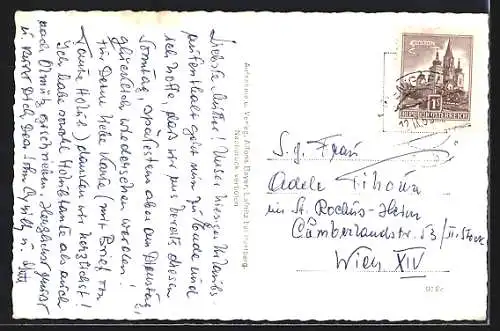 Liebste Mutter! Unser hiesiger Urlaubs-
aufenthalt geht nun zu Ende und
ich hoffe, daß wir uns bereits diesen
Sonntag, spätestens aber am Dienstag,
glücklich wiedersehen werden!
Für Deine liebe Karte (mit Brief von
Tante Holub) danken wir herzlichst!
Ich habe sowohl Holubtante als auch
nach Olmütz geschrieben. Herzlichst grüßt
u. küsst Dich, Dein
Aufnahme u. Verlag: Alfons Bayer,
Nachdruck verboten
REPUBLIK ÖSTERREICH
S. g. Frau
Adele
per St. Rochus-Heim
Cumberlandstr. 53 / II. Stock
Wien XIV